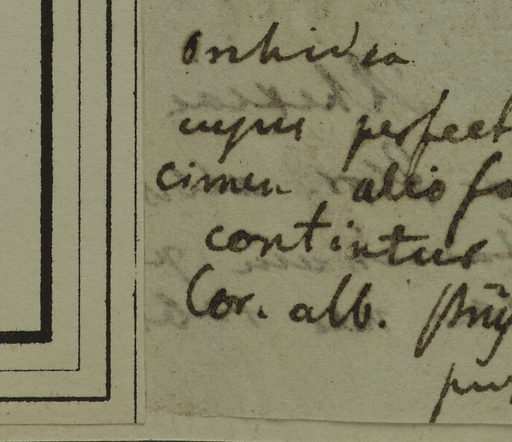 Orchidea
cujus perfect
cimen alio fo
contintur
Cor. alb.
pur